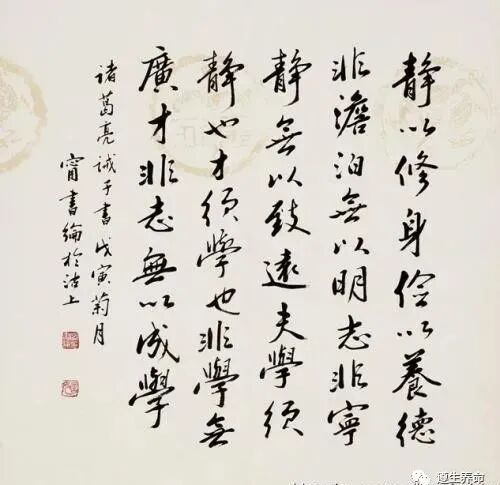 静以修身儉以養德
非澹泊無以明志非寧
静無以致遠夫學須
静也才須學也非學無
廣才非志無以成學
諸葛亮誡子書戊寅菊月
甯書綸於沽上
遵生养命